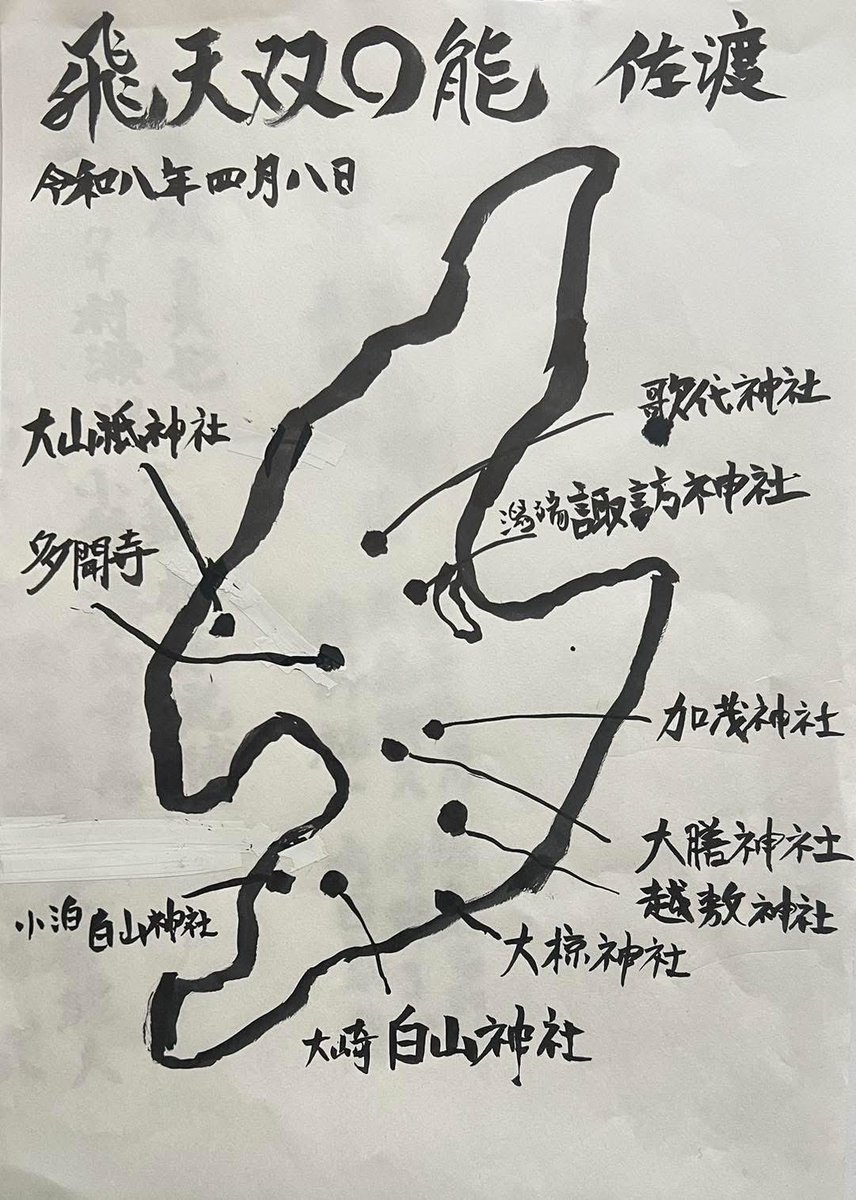 飛天双〇能 佐渡
令和八年四月八日
歌代神社
大山祇神社
潟端諏訪神社
多聞寺
加茂神社
大膳神社
越敷神社
小泊白山神社
大椋神社
大崎白山神社